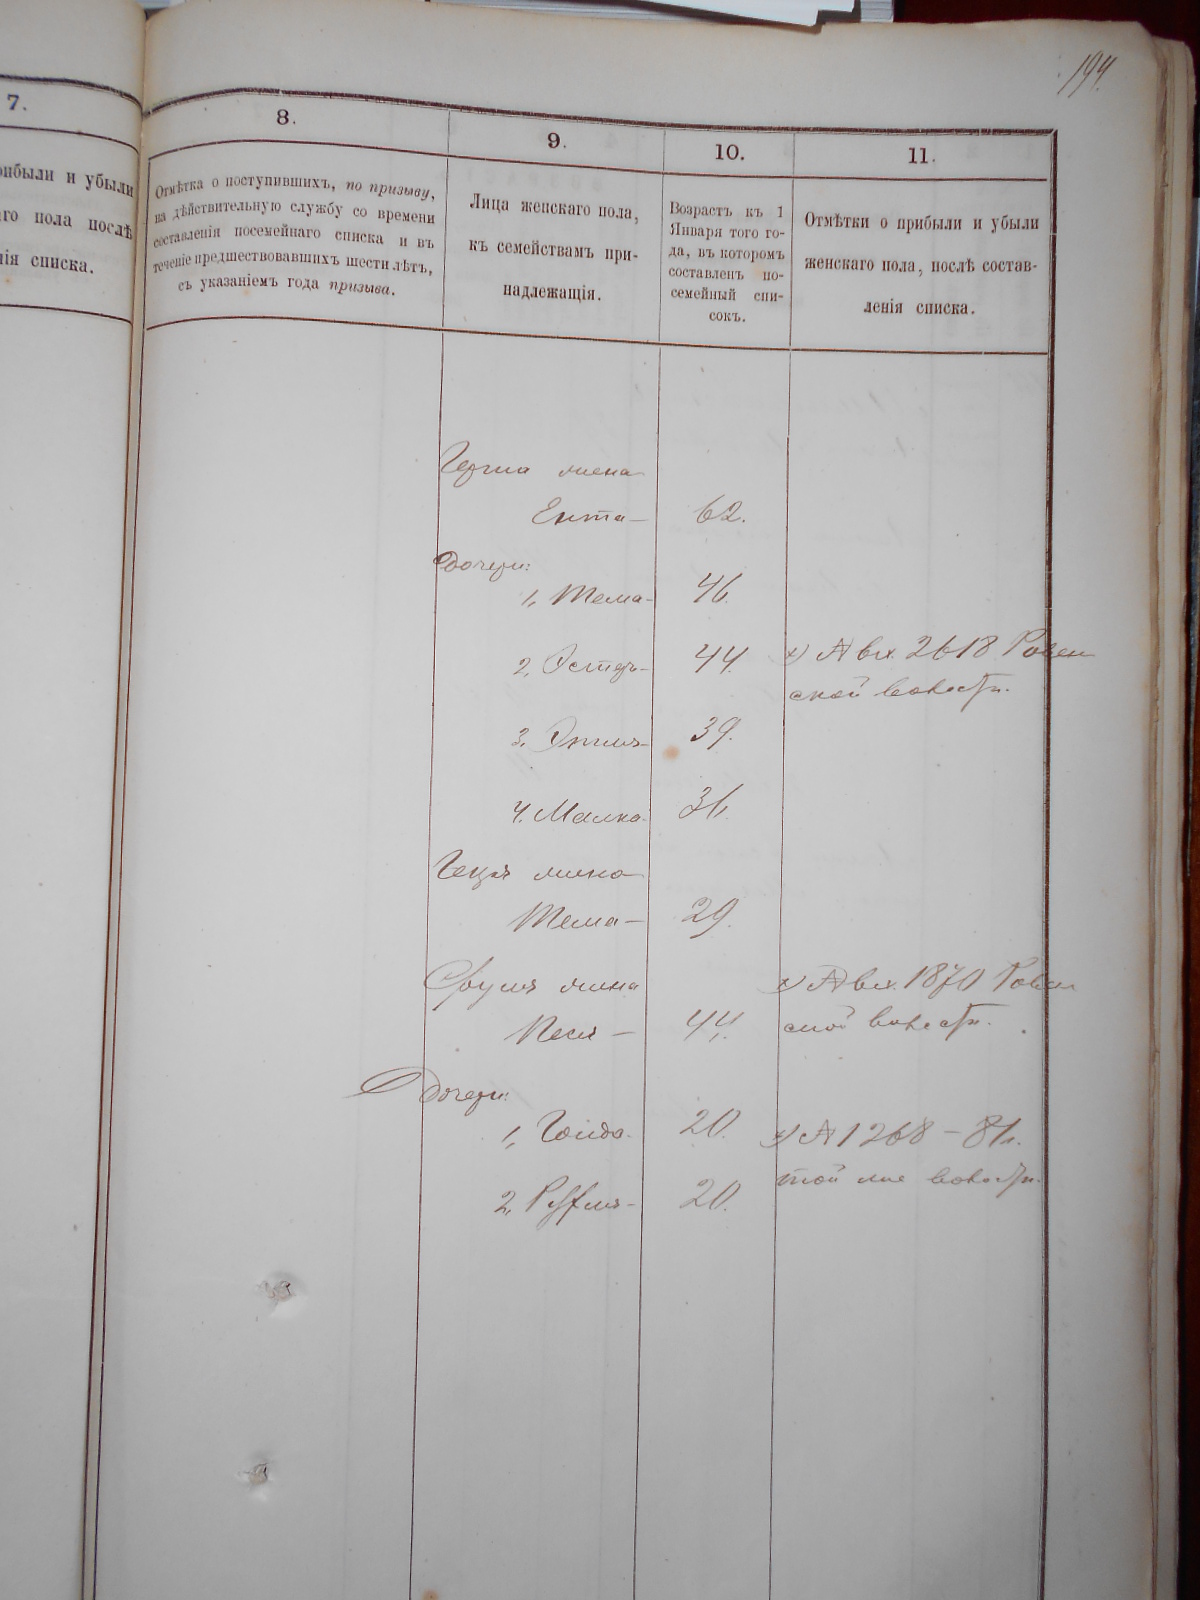 194.
7.
8.
9.
10.
11.
рибыли и убыли
го пола послѣ
ія списка.
Отмѣтка о поступившихъ, по призыву,
на дѣйствительную службу со времени
составленія посемейнаго списка и въ
теченіе предшествовавшихъ шести лѣтъ,
съ указаніемъ года призыва.
Лица женскаго пола,
къ семействамъ при-
надлежащія.
Возрастъ къ 1
Января того го-
да, въ которомъ
составленъ по-
семейный спи-
сокъ.
Отмѣтки о прибыли и убыли
женскаго пола, послѣ состав-
ленія списка.
жена
Ента 62.
Дочери:
1, Тема 46.
2, Эстеръ 44. 2618 Ровен
ской
3, 39.
4. Малка 36.
жена
Тема 29.
Сруля жена 1870 Ровен
Песя 44. ской
Дочери:
1, 20. 1268 - 81
той же
2, 20.